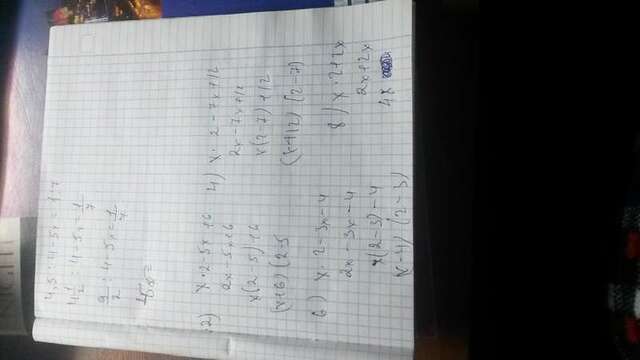 4,5 : 4-5x = 1:7
4 1/2 : 4-5x = 1/7
9/2 : 4-5x = 1/7
2) x · 2-5x+6
2x-5x+6
x(2-5)+6
(x+6)(2-5
4) x · 2-7x+12
2x-7x+12
x(2-7)+12
(x+12)(2-7)
6) x · 2-3x-4
2x-3x-4
x(2-3)-4
(x-4)(2-3)
8) x · 2+2x
2x+2x
4x